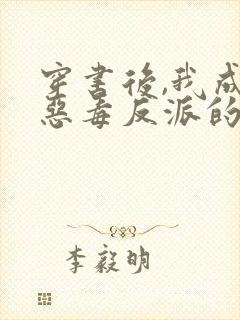 穿書後,我成
惡毒反派的
李毅明